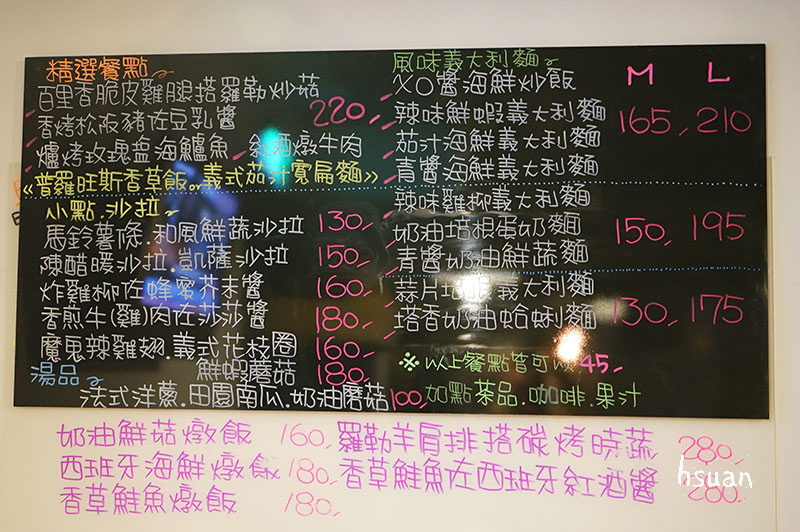 精選餐點
百里香脆皮雞腿搭羅勒炒菇
香烤松阪豬佐豆乳醬 220
爐烤玫瑰盐海鱸魚 紅酒燉牛肉
《普羅旺斯香草飯or義式茄汁寬扁麵》
小點.沙拉
馬鈴薯條.和風鮮蔬沙拉 130
陳醋暖沙拉.凱薩沙拉 150
炸雞柳佐蜂蜜芥末醬 160
香煎牛(雞)肉佐莎莎醬 180
魔鬼辣雞翅.義式花枝圈 160
鮮蝦蘑菇 180
湯品
法式洋蔥.田園南瓜.奶油蘑菇 100
風味義大利麵 M L
XO醬海鮮炒飯
辣味鮮蝦義大利麵 165, 210
茄汁海鮮義大利麵
青醬海鮮義大利麵
辣味雞柳義大利麵
奶油培根蛋奶麵 150, 195
青醬奶油鮮蔬麵
蒜片培根義大利麵
塔香奶油蛤蜊麵 130, 175
※以上餐點皆可以45
加點茶品.咖啡.果汁
奶油鮮菇燉飯 160
西班牙海鮮燉飯 180
香草鮭魚燉飯 180
羅勒羊肩排搭碳烤時蔬 280
香草鮭魚佐西班牙紅酒醬 280
hsuan